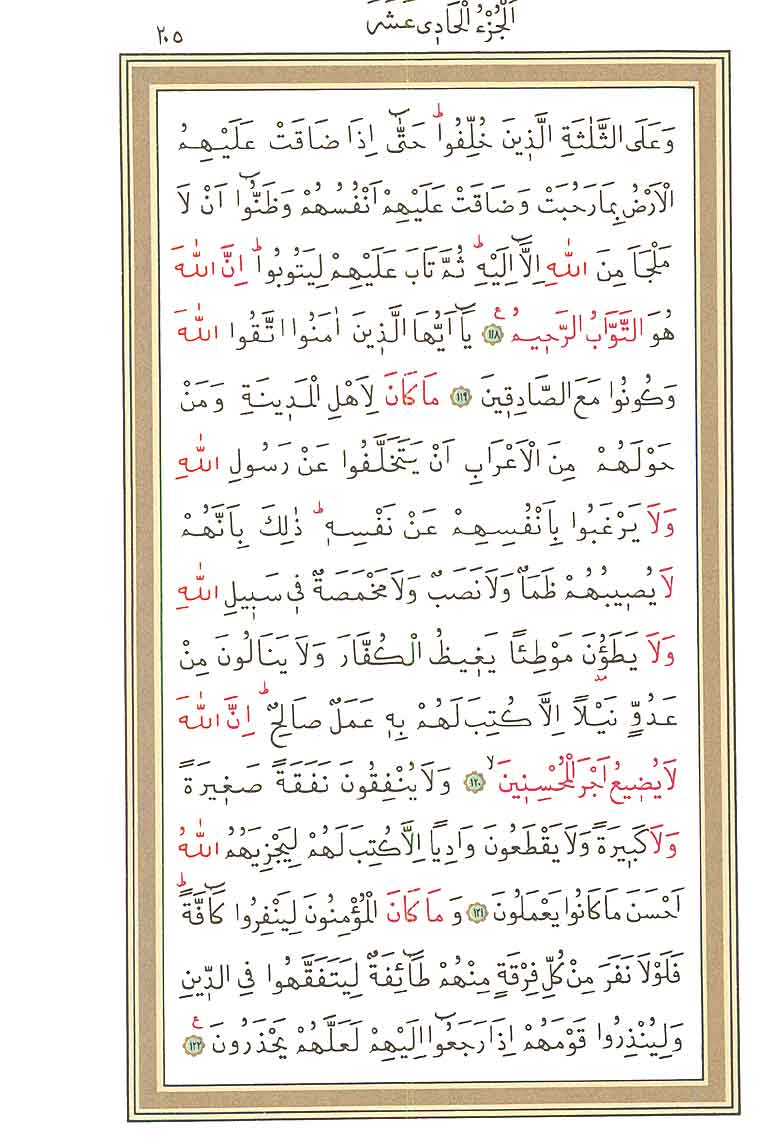 اَلْجُزْءُ الْحَادِي عَشَرَ
٢٠٥
وَعَلَى الثَّلٰثَةِ الَّذِينَ خُلِّفُواۜ حَتّٰٓى اِذَا ضَاقَتْ عَلَيْهِمُ
الْاَرْضُ بِمَا رَحُبَتْ وَضَاقَتْ عَلَيْهِمْ اَنْفُسُهُمْ وَظَنُّٓوا اَنْ لَا
مَلْجَاَ مِنَ اللّٰهِ اِلَّٓا اِلَيْهِۜ ثُمَّ تَابَ عَلَيْهِمْ لِيَتُوبُواۜ اِنَّ اللّٰهَ
هُوَ التَّوَّابُ الرَّحِيمُ ۟ ﴿١١٨﴾ يَٓا اَيُّهَا الَّذِينَ اٰمَنُوا اتَّقُوا اللّٰهَ
وَكُونُوا مَعَ الصَّادِقِينَ ﴿١١٩﴾ مَا كَانَ لِاَهْلِ الْمَدِينَةِ وَمَنْ
حَوْلَهُمْ مِنَ الْاَعْرَابِ اَنْ يَتَخَلَّفُوا عَنْ رَسُولِ اللّٰهِ
وَلَا يَرْغَبُوا بِاَنْفُسِهِمْ عَنْ نَفْسِهِۜ ذٰلِكَ بِاَنَّهُمْ
لَا يُصِيبُهُمْ ظَمَاٌ وَلَا نَصَبٌ وَلَا مَخْمَصَةٌ فِي سَبِيلِ اللّٰهِ
وَلَا يَطَؤُ۫نَ مَوْطِئًا يَغِيظُ الْكُفَّارَ وَلَا يَنَالُونَ مِنْ
عَدُوٍّ نَيْلًا اِلَّا كُتِبَ لَهُمْ بِهِ عَمَلٌ صَالِحٌۜ اِنَّ اللّٰهَ
لَا يُضِيعُ اَجْرَ الْمُحْسِنِينَۙ ﴿١٢٠﴾ وَلَا يُنْفِقُونَ نَفَقَةً صَغِيرَةً
وَلَا كَبِيرَةً وَلَا يَقْطَعُونَ وَادِيًا اِلَّا كُتِبَ لَهُمْ لِيَجْزِيَهُمُ اللّٰهُ
اَحْسَنَ مَا كَانُوا يَعْمَلُونَ ﴿١٢١﴾ وَمَا كَانَ الْمُؤْمِنُونَ لِيَنْفِرُوا كَٓافَّةًۜ
فَلَوْلَا نَفَرَ مِنْ كُلِّ فِرْقَةٍ مِنْهُمْ طَٓائِفَةٌ لِيَتَفَقَّهُوا فِي الدِّينِ
وَلِيُنْذِرُوا قَوْمَهُمْ اِذَا رَجَعُٓوا اِلَيْهِمْ لَعَلَّهُمْ يَحْذَرُونَ ۟ ﴿١٢٢﴾